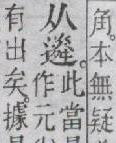 角。本無疑
从遴。
此當
作元
有出矣。據